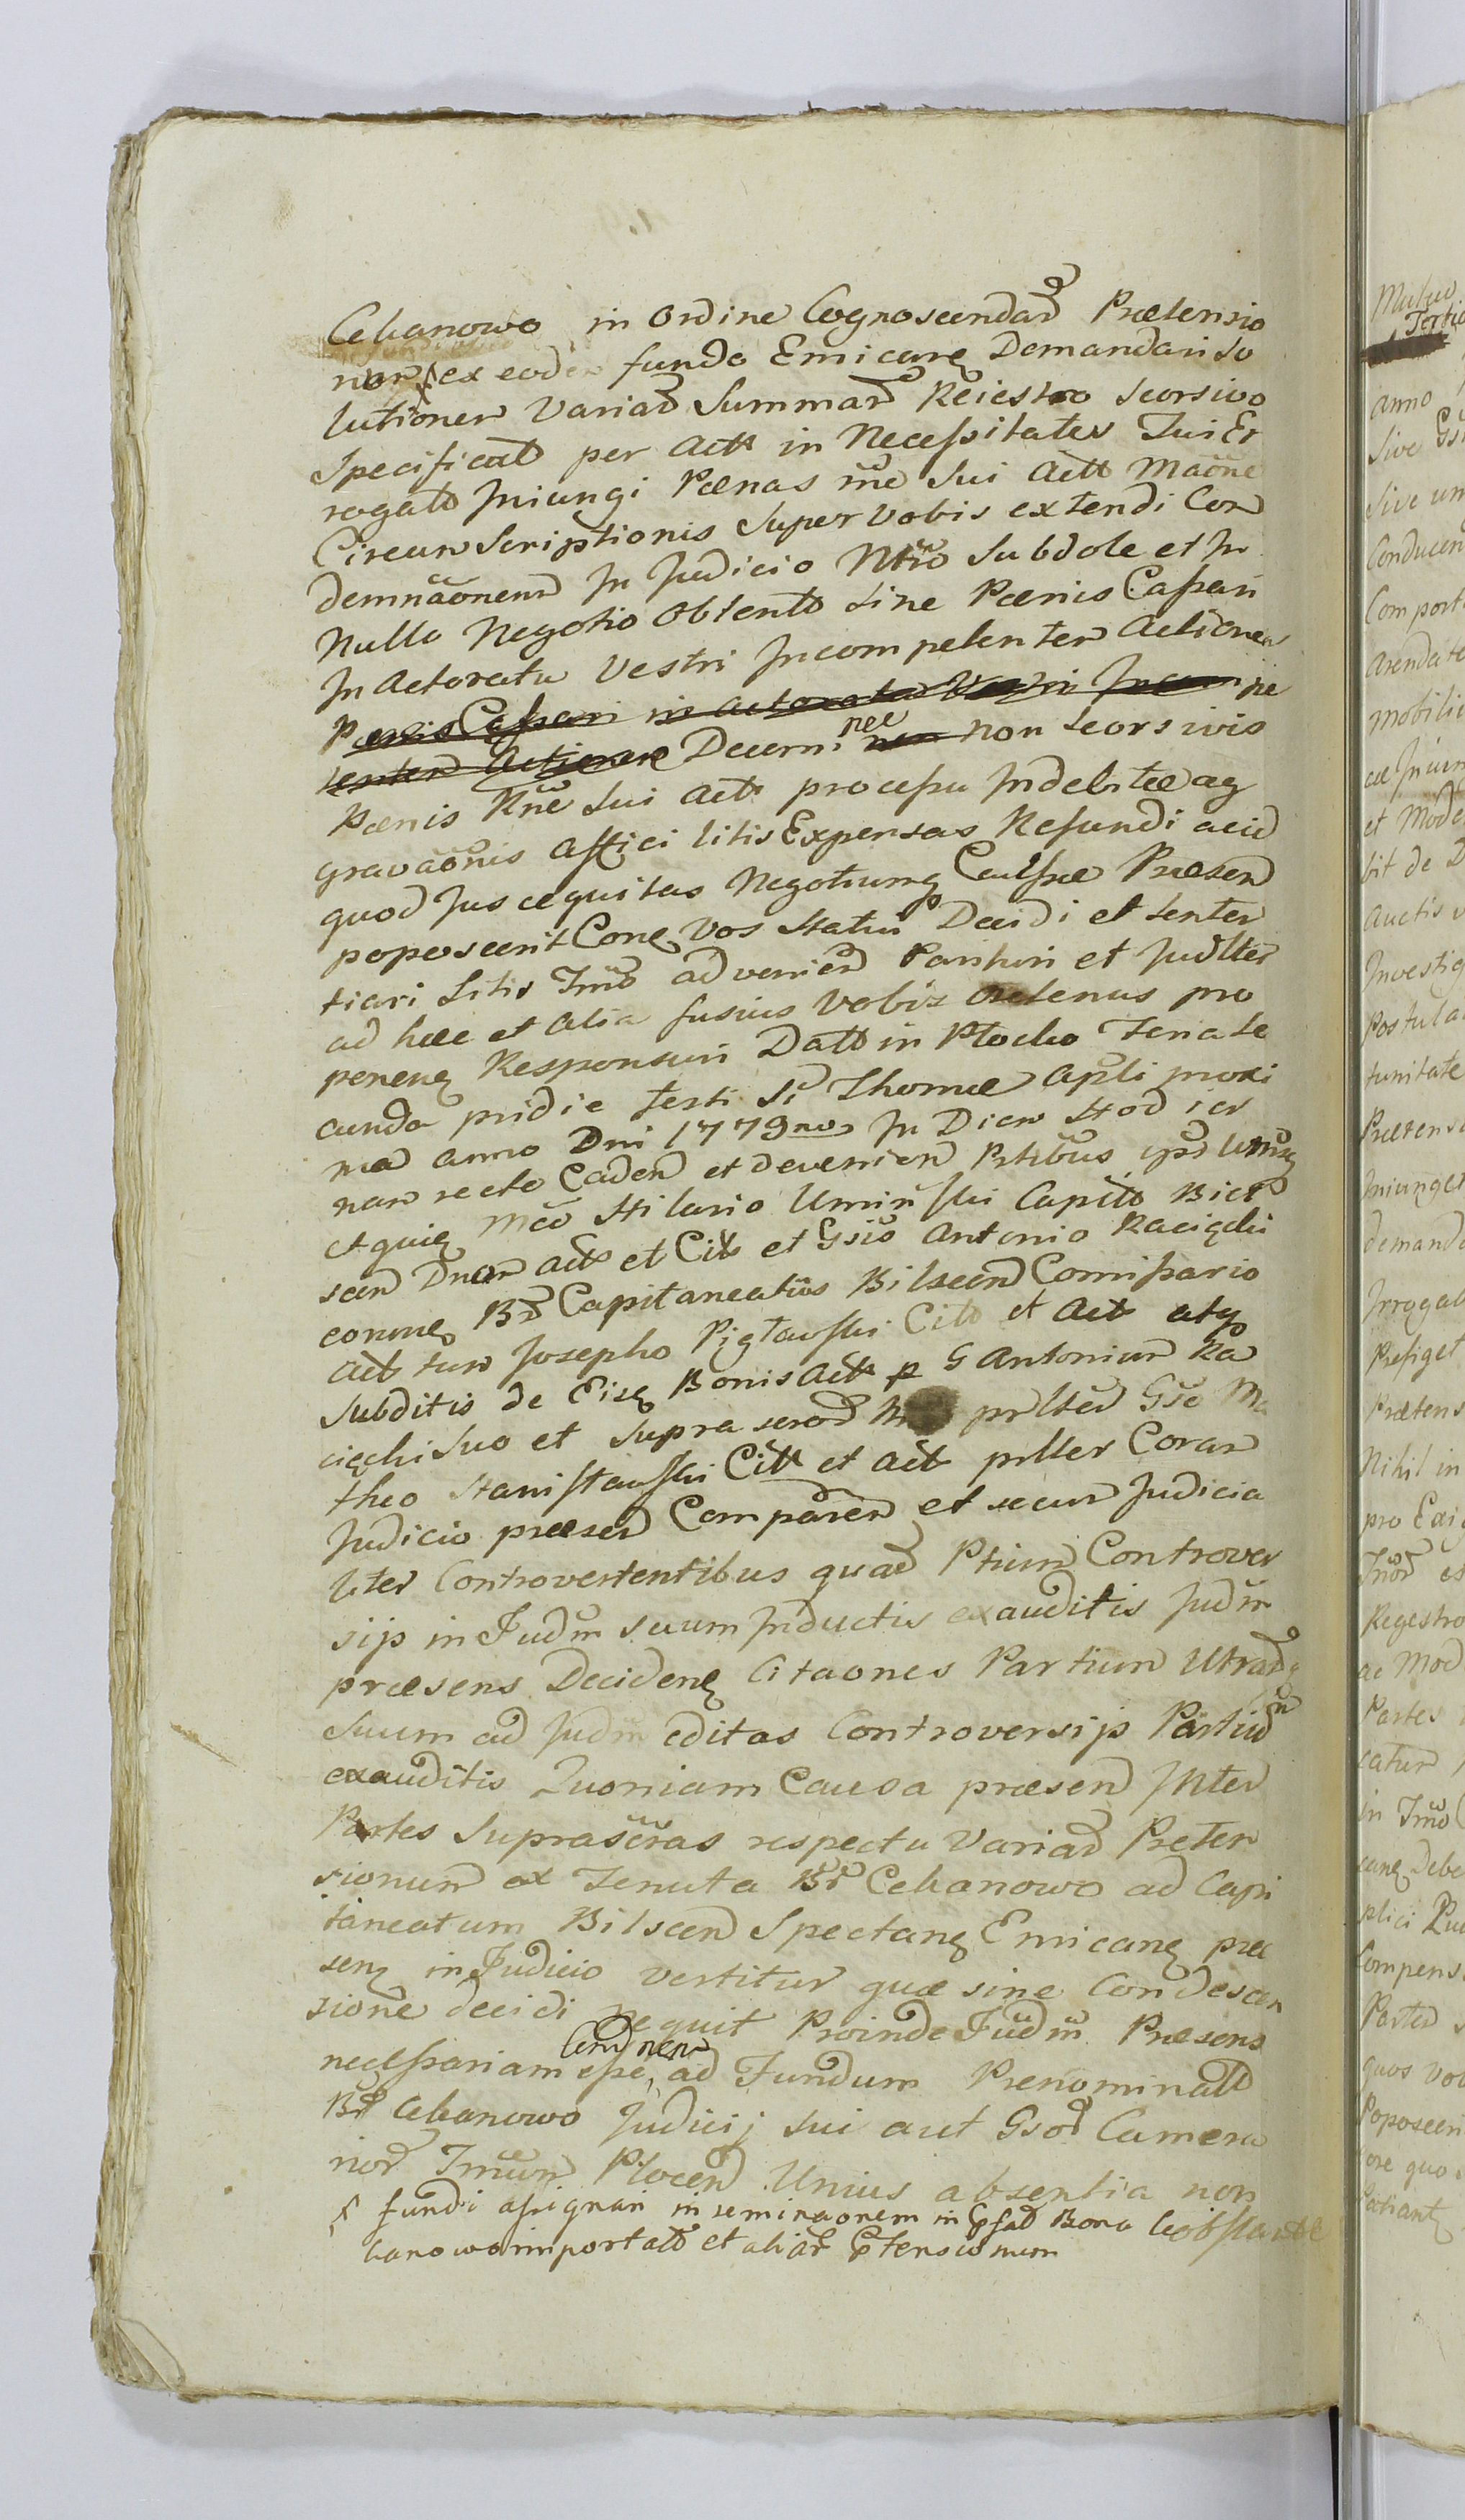 Cekanowo in Ordine Cognoscendar Prætensio
num ex eodem fundo Emicare Demandari So
lutionem Variar Summar Reiestro Seorsivo
Specificat per Actt in Necessitates Tui Er
rogatt Iniungi Pœnas rne Sui Actt Maone
Circumscriptionis Super Vobis extendi Con
demnaonem In Judicio Ntro Subdole et In
Nullo Negotio Obtentt Sine Pœnis Cassari
In Actoratu Vestri Incompetenter Actionem
Pœnis Cassari in Actoratu Vestri Incompe
tenter Actionem Decerni nec non Seorsivis
Pœnis Rne Sui Actt processu Indebitæ ag
gravaonis Affici litis Expensas Refundi ac id
quod Jus æquitas Negotiumq Caussæ Præsen
poposcerit Conq Vos Statui Decidi et Senten
tiari Litis Tmo advenien Parituri et Judlter
ad hæc et alia fusius Vobis oretenus pro
ponenq Responsuri Datt in Plocko Feria Se
cunda pridie festi Sti Thomæ Apli proxi
ma Anno Dni 1779no In Diem Hodier
nam recte Caden et devenien Ptibus ips Utrisq
et quiq Mco Hilario Umiński Capitt Biel
scen Dnum Actt et Citt et Gsio Antonio Racięcki
eorumq Br Capitaneatus Bilscen Comissario
Actt tum Josepho Pigłowski Citt et Actt atq
Subditis de Eisq Bonis Actt p G Antonium Ra
cięcki Suo et Supra scrod prlter Gso Ma
theo Stanisławski Citt et Actt prller Coram
Judicio præsen Comparen et secum Judicia
liter Controvertentibus quar Ptium Controver
sijs in Judm suum Inductis exauditis Judm
præsens Decidenq Citaones Partium Utrarq
Suum ad Judm editas Controversijs Partium
exauditis Quoniam Causa præsen Inter
Partes Suprascras respectu Variar Præten
sionum ex Tenuta Br Cekanowo ad Capi
taneatum Bilscen Spectanq Emicanq præ
senq in Judicio vertitur quæ sine Condescen
sione decidi nequit Proinde Judm Præsens
necessariam esse Condnem ad Fundum Prenominatt
Br Cekanowo Judicij sui aut Gsor Camera
rior Tmum Plocen Unius absentia non
obstante
fundi assignari in seminaonem in Epsat Bona Ce
kanowo importatt et aliar Ptensionum